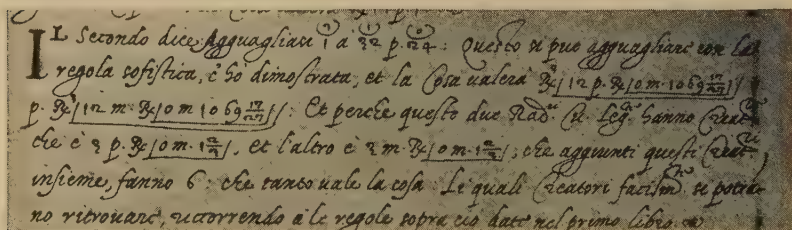 IL Secondo dice Agguagliare 1³ a 32¹ p. 24⁰: Questo si puo agguagliare con la
regola sofistica, c'ho dimostrata, et la Cosa valera R³/12 p. R/0 m. 1069 17/27//
p. R³/12 m. R/0 m 1069 17/27//: Et perche questo due Rad. Cu. leg. hanno Creat.
che è 3 p. R/0 m. 1 2/3/, et l'altro è 3 m. R/0 m. 1 2/3/, che aggiunti questi Creat.
insieme, fanno 6: che tanto uale la cosa. Li quali Creatori facilm. si potra-
no ritrouare, ricorrendo a le regole sopra cio date nel primo libro.